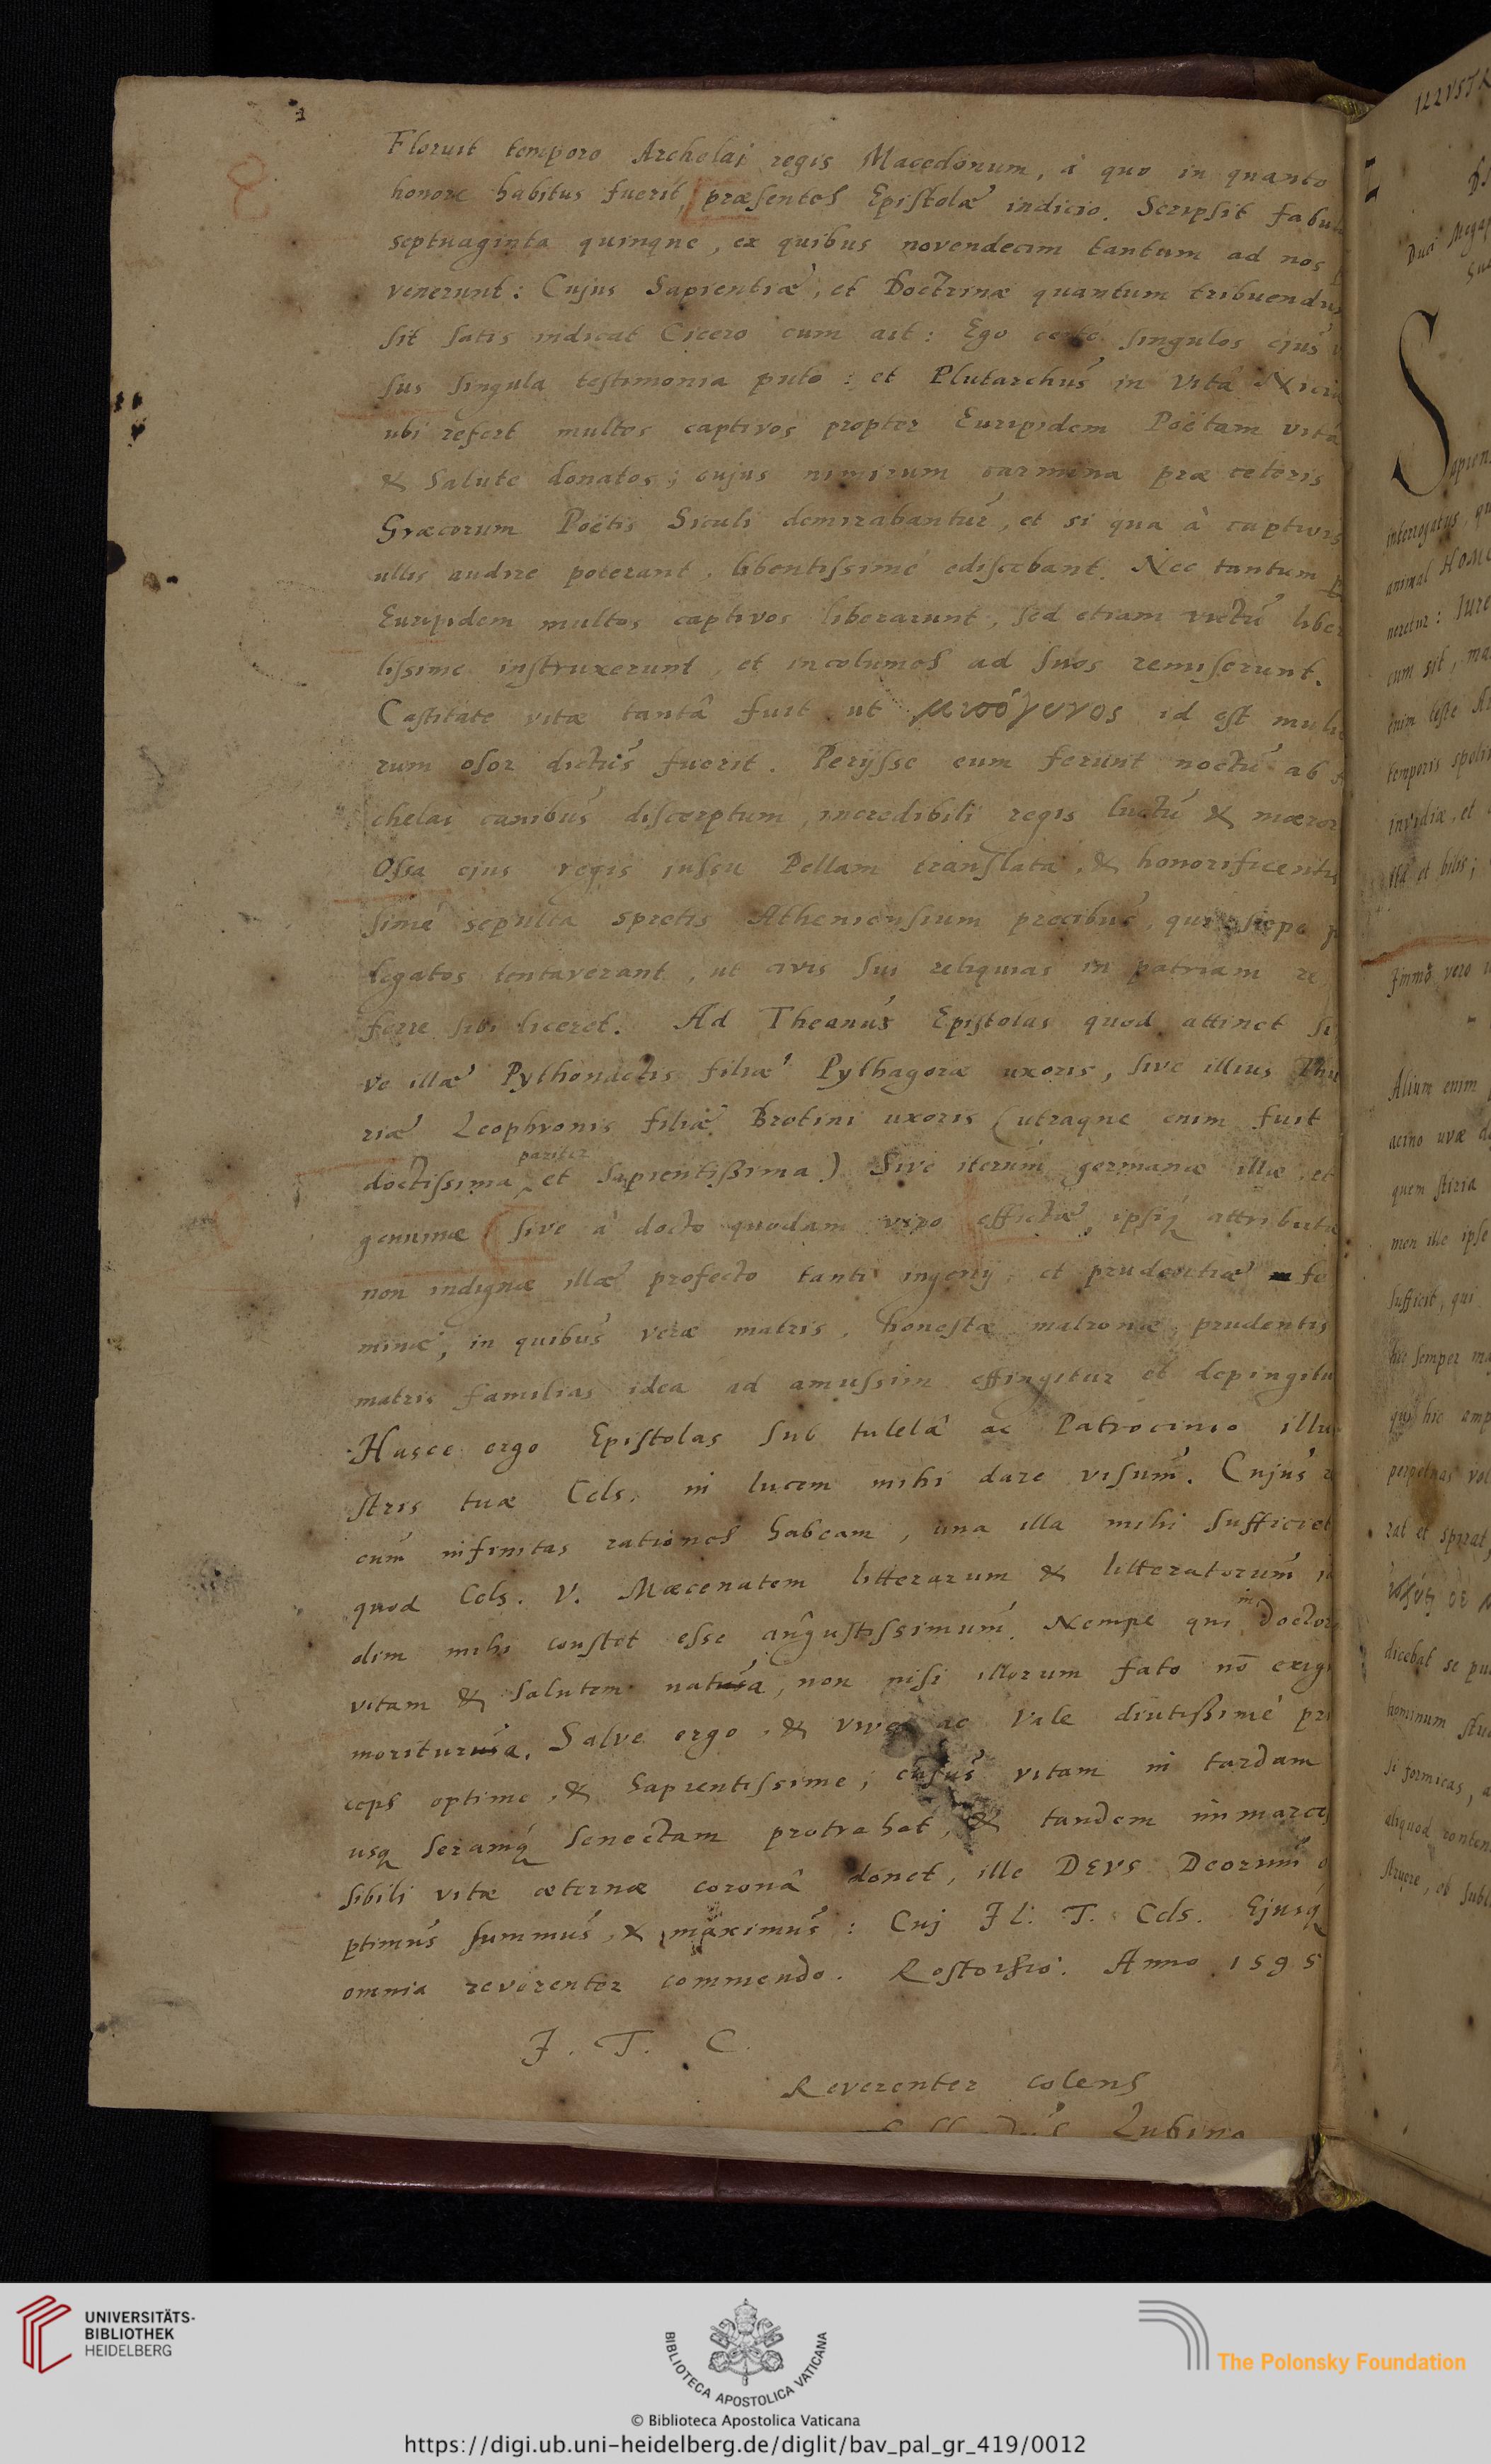 Floruit tempore Archelai regis Macedonum, à quo in quanto
honore habitus fuerit, præsentes Epistolæ indicio. Scripsit fabu
septuaginta quinque, ex quibus novendecim tantum ad nos
venerunt: Cujus Sapientiæ, et Doctrinæ quantum tribuendu
sit satis indicat Cicero cum ait: Ego certè singulos ejus
sus singula testimonia puto: et Plutarchus in Vita Nicia
ubi refert multos captivos propter Euripidem Poëtam vitâ
& Salute donatos; cujus nimirum carmina præ ceteris
Græcorum Poëtis Siculi demirabantur, et si qua à captivis
ullis audire poterant, libentissimè ediscebant. Nec tantum
Euripidem multos captivos liberarunt, sed etiam victu liber
lissime instruxerunt, et incolumes ad suos remiserunt.
Castitate vitæ tantâ fuit ut μισόγυνος id est mulie
rum osor dictus fuerit. Perijsse eum ferunt noctu ab
chelai canibus discerptum, incredibili regis luctu & mæror
Ossa ejus regis jussu Pellam translata, & honorificentis
simè sepulta spretis Atheniensium precibus, qui sæpe
legatos tentaverant, ut civis sui reliquias in patriam re
ferre sibi liceret. Ad Theanus Epistolas quod attinet si
ve illæ Pythonactis filiæ Pythagoræ uxoris, sive illius Thu
riæ Leophronis filiæ Brotini uxoris (utraque enim fuit
pariter
doctissima et sapientißima) Sive iterum germanæ illæ, et
genuinæ sive à docto quodam viro effictæ, ipsiq attributæ
non indignæ illæ profecto tanti ingenij, et prudentiæ fe
minæ; in quibus veræ matris, honestæ matronæ, prudentis
matris familias idea ad amussim effingitur et depingitu
Hasce ergo Epistolas sub tutelâ ac Patrocinio illu
stris tuæ Cels. in lucem mihi dare visum. Cujus
cum infinitas rationes habeam, una illa mihi sufficiet
quod Cels. V. Mæcenatem litterarum & litteratorum
olim mihi constet esse angustissimum. Nempe qui in doctor
vitam & salutem natura, non nisi illorum fato nō
moritura. Salve ergo, & vive ac Vale diutißimè pri
ceps optime, & Sapientissime; cujus vitam in tardam
usq seramq senectam protrahet, & tandem immarces
sibili vitæ æternæ coronâ donet, ille DEVS Deorum o
ptimus summus, & maximus: Cuj Jl. T. Cels. Ejusq
omnia reverenter commendo. Rostochio. Anno 1595
J. T. C.
Reverenter colens
Lubinq
ILLVSTR
Duci Megap
Sapien
interrogatus, qu
animal HOM
neretur: Iure
cum sit, ma
enim teste
temporis spoli
invidiæ, et
ita et bilis;
Jmmò vero
Alium enim
acino uvæ
quem stiria
men ille ipse
sufficit, qui
hic semper
qui hic amp
perpetuas vol
rat et spirat,
dicebat se pu
hominum stu
si formicas,
aliquod conten
struere, ob subl
UNIVERSITÄTS-
BIBLIOTHEK
HEIDELBERG
BIBLIOTECA APOSTOLICA VATICANA
The Polonsky Foundation
© Biblioteca Apostolica Vaticana
https://digi.ub.uni-heidelberg.de/diglit/bav_pal_gr_419/0012